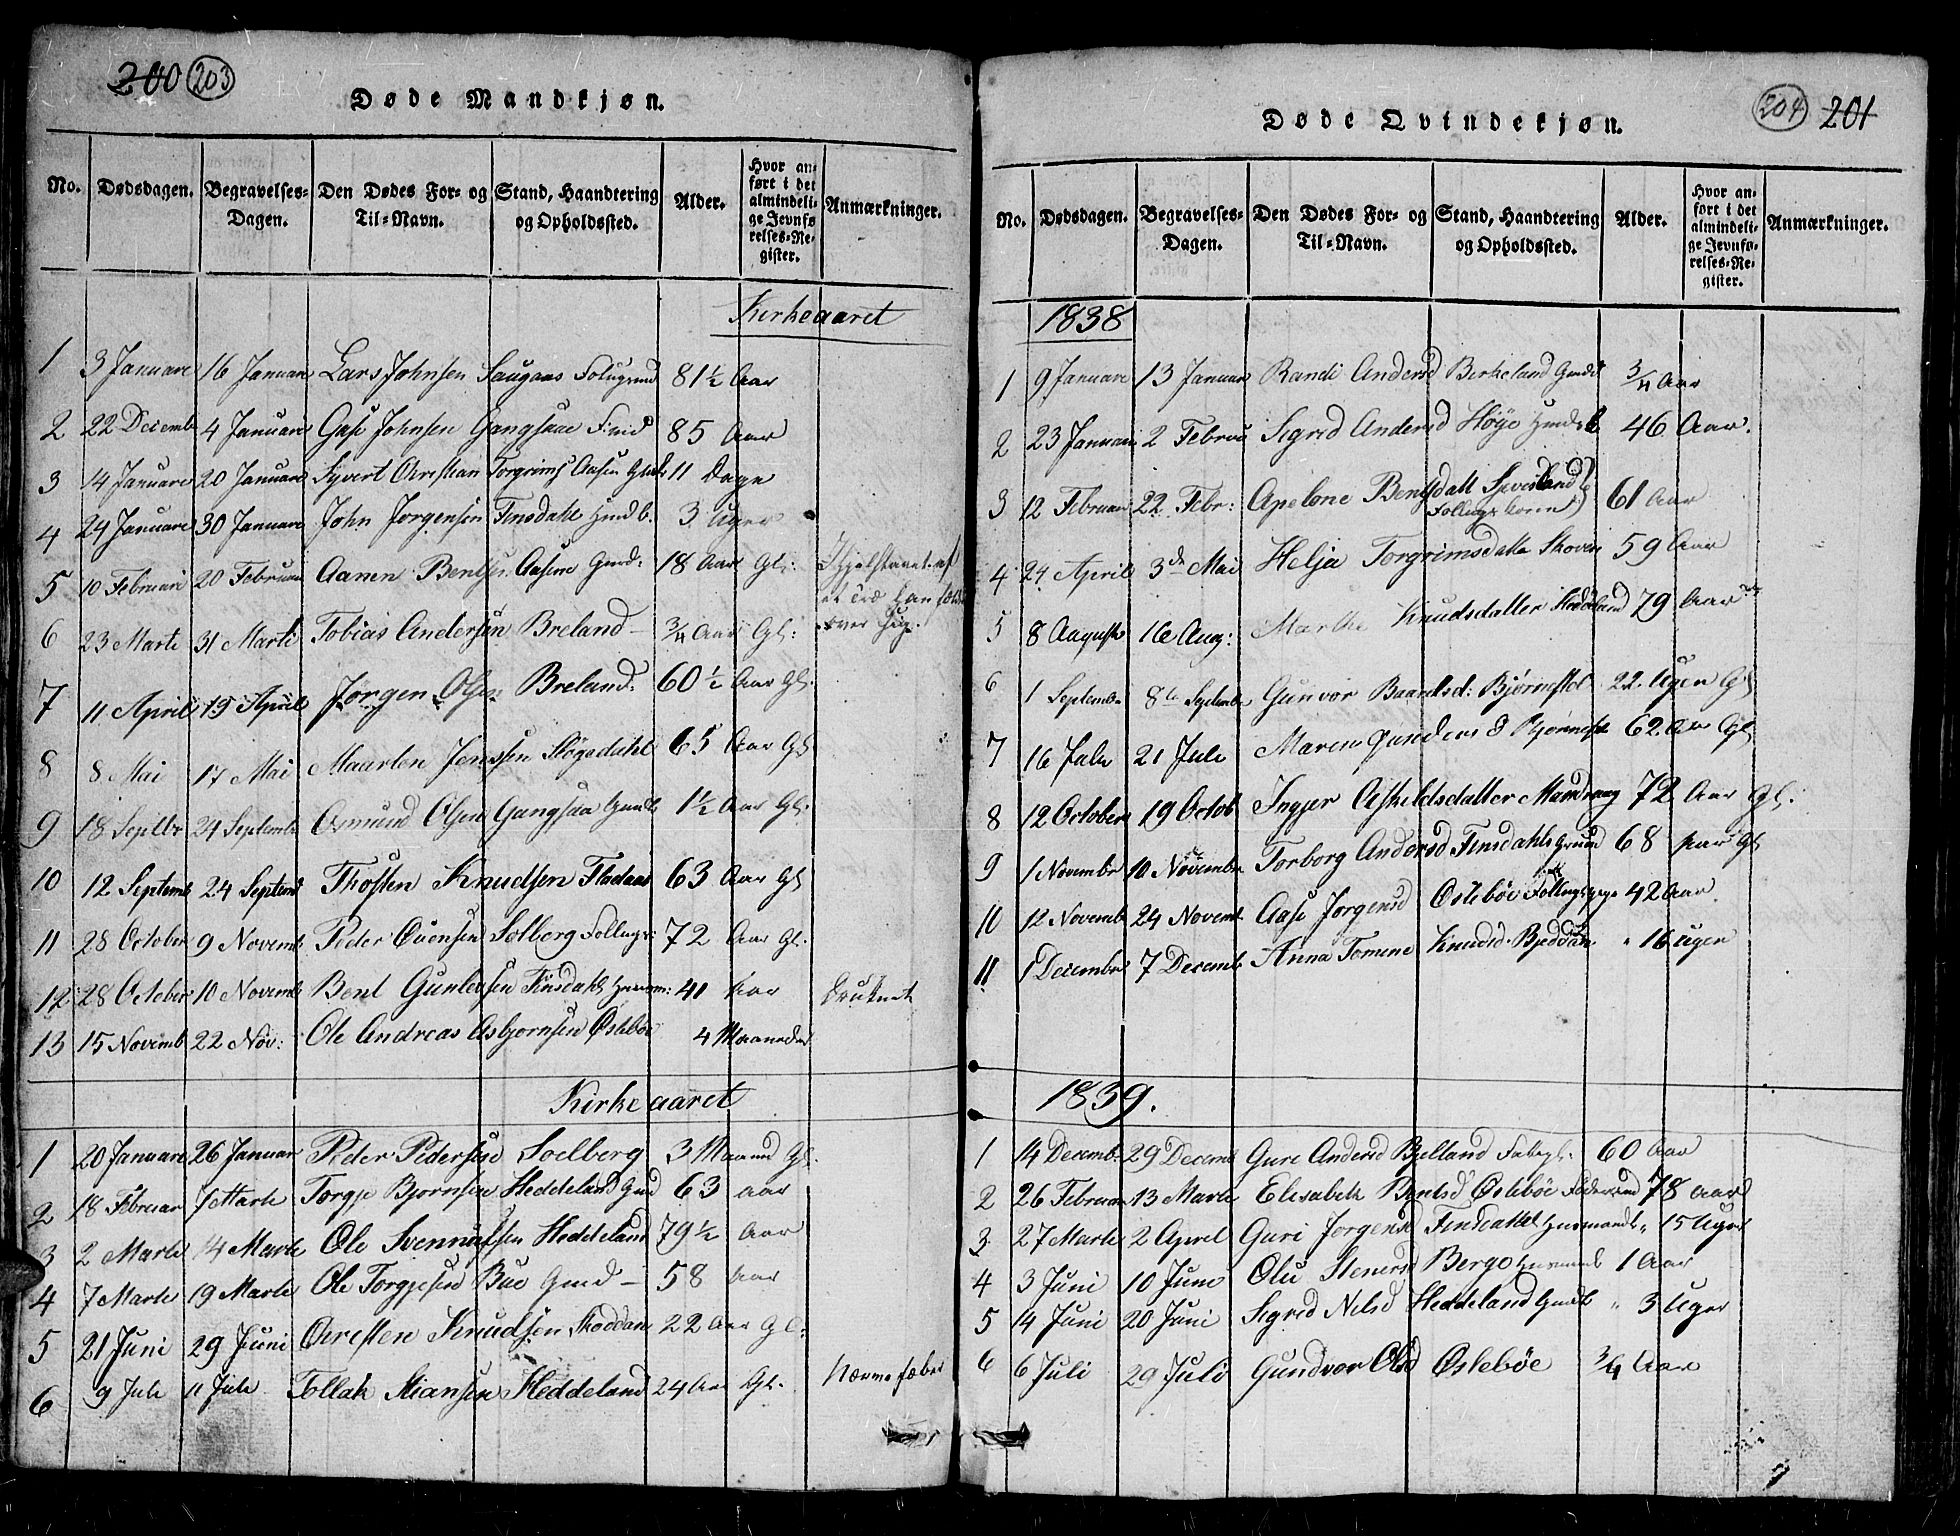 200 203
Døde Mandkjøn.
No. Dødsdagen. Begravelses-Dagen. Den Dødes For- og Til-Navn. Stand, Haandtering og Opholdssted. Alder. Hvor anført i det almindelige Jevnførelses-Register. Anmærkninger.
Kirkeaaret
1 3 Januare 16 Januari Lars Johnsen 81½ Aar
2 22 Decemb 4 Januari Johnsen Gangsaae 85 Aar
3 14 Januare 20 Januare Syvert Christian Torgrims Aasen 11 Dage
4 24 Januare 30 Januare John Jorgensen Finsdahl 3 Uger
5 10 Februari 20 Februari Aanen Bents. Aasene 18 Aar Gl: Ihjelslaaet af
et Træ han
over
6 23 Marti 31 Marti Tobias Andersen Breland ¾ Aar Gl:
7 11 April 19 April Jørgen Olsen Breland 60½ Aar Gl.
8 8 Mai 17 Mai Maarten Jenssen Høgedahl 65 Aar Gl
9 18 Septbr 24 Septemb Osmund Olsen Gangsaa 1½ Aar Gl.
10 12 Septemb 24 Septemb Thosten Knudsen Fladaas 63 Aar Gl
11 28 October 9 Novemb Peder Evensen Solberg 72 Aar Gl.
12 28 October 10 Novemb Bent Gunlevsen Finsdahl 41 Aar Druknet
13 15 Novemb 22 Nov: Ole Andreas Asbjornsen Østebøe 4 Maaneder
Kirkeaaret
1 20 Januare 26 Januar Peder Pedersen Soelberg 3 Maaned Gl.
2 18 Februar 1 Marte Torgje Bjornsen Heddeland 63 aar
3 2 Marte 14 Marte Ole Svennulfsen Heddeland 79½ Aar
4 7 Marte 19 Marte Ole Torgjesen Bue 58 Aar
5 21 Juni 29 Juni Cristen Knudsen Skoddan 22 Aar Gl:
6 9 Jule 11 Jule Tollak Stiansen Heddeland 24 Aar Gl.
204 201
Døde Qvindekjøn.
No. Dødsdagen. Begravelses-Dagen. Den Dødes For- og Til-Navn. Stand, Haandtering og Opholdssted. Alder. Hvor anført i det almindelige Jevnførelses-Register. Anmærkninger.
1838
1 9 Januare 13 Januar Randi Andersd Birkeland ¾ Aar
2 23 Januari 2 Februa Sigrid Andersd Høye 46 Aar.
3 12 Februari 22 Febr: Apelone Bentsdatt 61 Aar
4 24 April 3de Mai Helja Torgrimsdatte Skoven 59 Aar
5 8 Auguste 16 Aug: Marthe Knudsdatter 79 Aar
6 1 Septembr 8de Septemb Gunvor Baardsd: Bjørnestøl 22 Ugen Gl
7 16 Jule 21 Jule Maren Gunders d 62 Aar Gl
8 12 October 19 Octob Ingjer Askeldsdatter 72 Aar Gl.
9 1 Novembr 10 Novembr Torborg Andersd Finsdahls 68 Aar Gl
10 12 Novemb 24 Novemb Aase Jorgensd Østebøe 42 Aar.
11 1 Decembr 7 Decemb Anna Tomine Knudsd. 16 Uger
1839.
1 14 Decemb: 29 Decemb Gure Andersd Bjelland 60 Aar
2 26 Februar 13 Marte Elisabeth Bentsd Østebøe 78 Aar
3 27 Marte 2 April Guri Jorgensd Finsdahl 15 Uger
4 3 Juni 10 Juni Olu Stenersd Berge 1 Aar
5 14 Juni 20 Juni Sigrid Nilsd Heddeland 3 Uger
6 6 Juli 29 Juli Gundvor Olsd Østebøe ¾ Aar